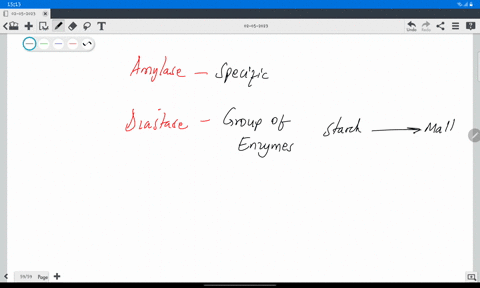 13:13
02-05-2023
02-05-2023
T
Undo
Redo
Amylase — Specific
Diastase — Group of Enzymes
Starch ⟶ Mall
39/39 Page